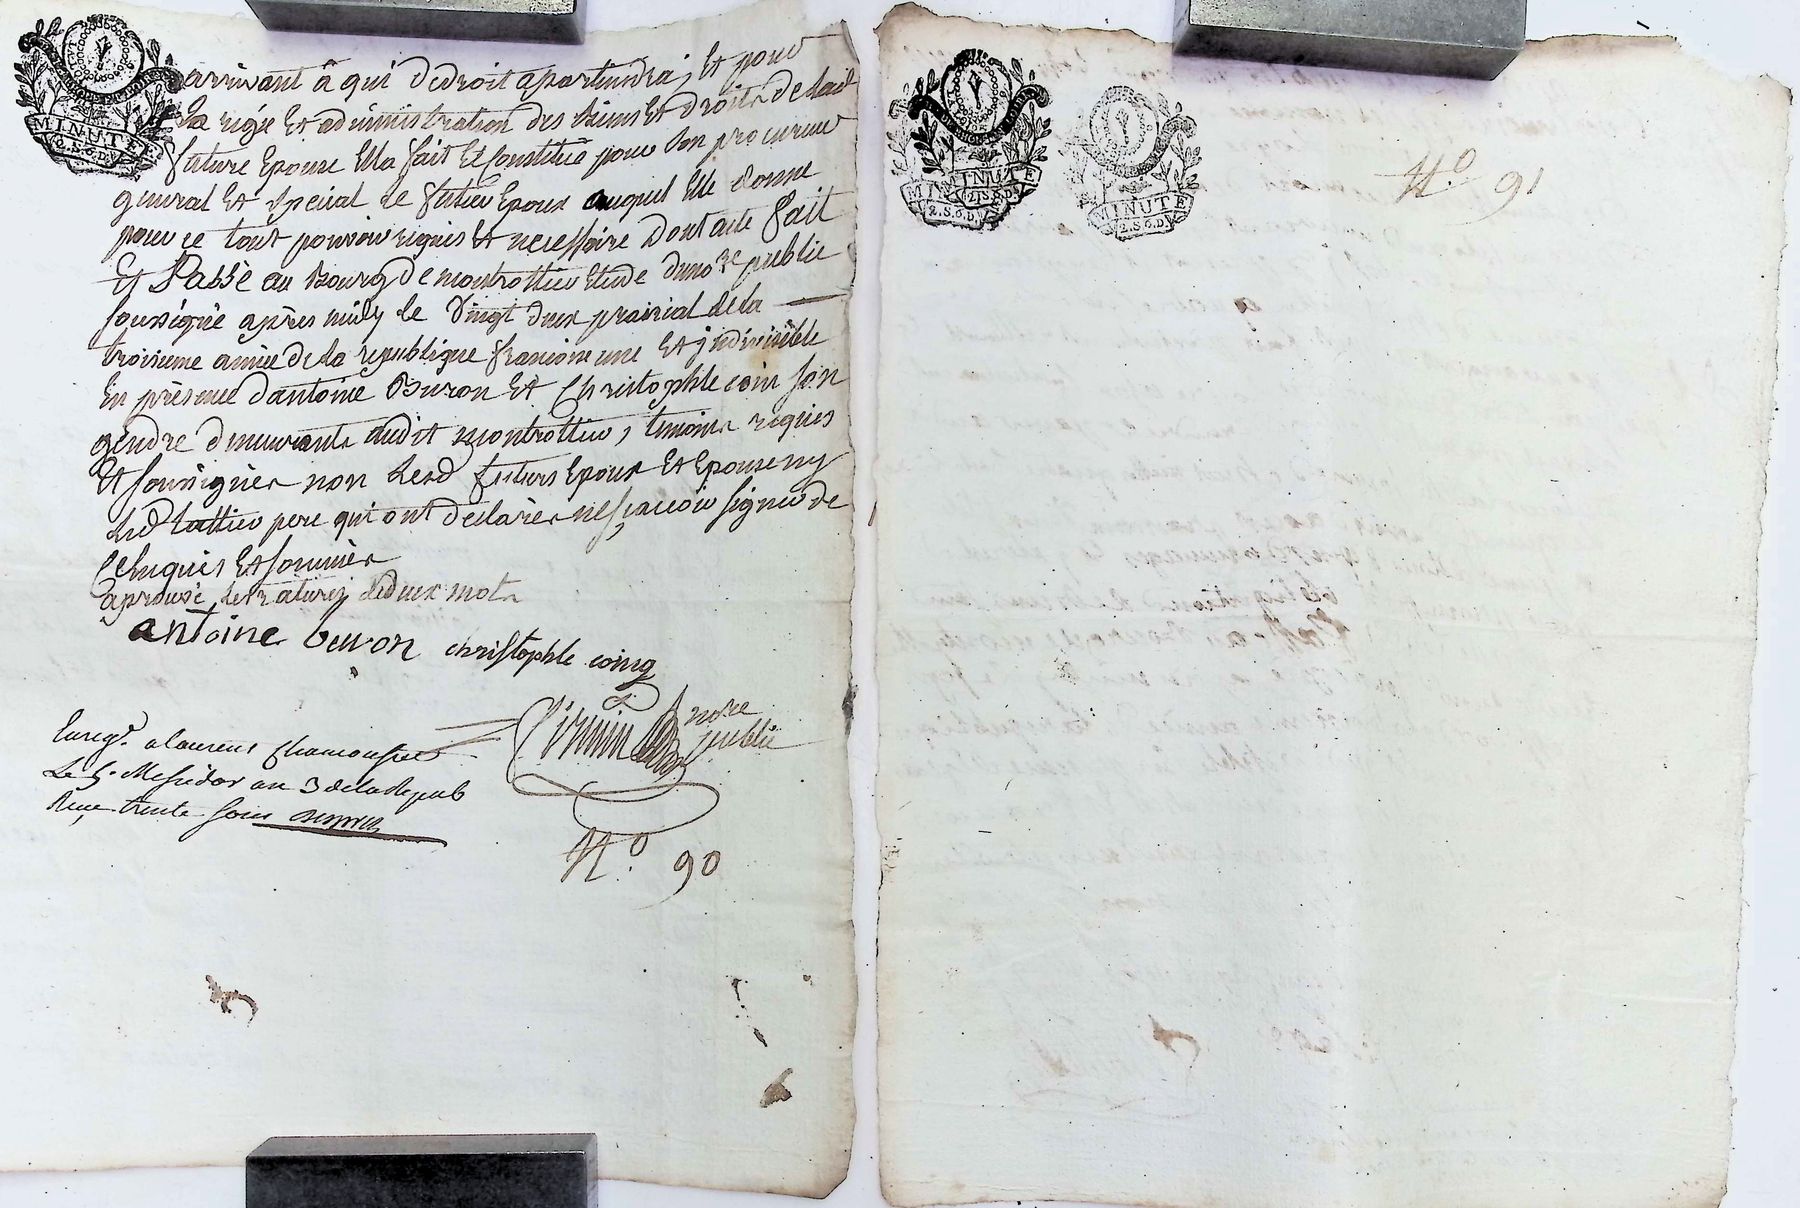 MINUTE
2.S.6.D.
arrivant â qui de droit apartiendra, Et pour
La regie Et administration des biens Et droits de lad
future Epouse Ella fait Et Constitué pour son procureur
general Et special le futur Epoux auquel Elle donne
pour ce tout pouvoir requis Et necessaire Dont acte fait
Et Passé au Bourg de montrottier Etude du no.re public
soussigné apres midy le Vingt deux prairial de la
troisieme année de la republique francoise une Et jndivisible
En présence d'antoine Buron Et Christophle coin son
gendre demeurants audit montrottier, temoins requis
Et soussignés non Lesd futurs Epoux Et Epouse ny
Led Lattier pere qui ont declarés ne sçavoir signer de
ce Enquis Et sommés
aprouvé les ratures de deux mots
antoine buron christophle coing
no.re public
Enreg.t a laurent Chamousset
Le 5. Messidor an 3 de la Repub
Reçu trente sous
N.o 90
MINUTE
2.S.6.D.
MINUTE
2.S.6.D.
MINUTE
2.S.6.D.
N.o 91